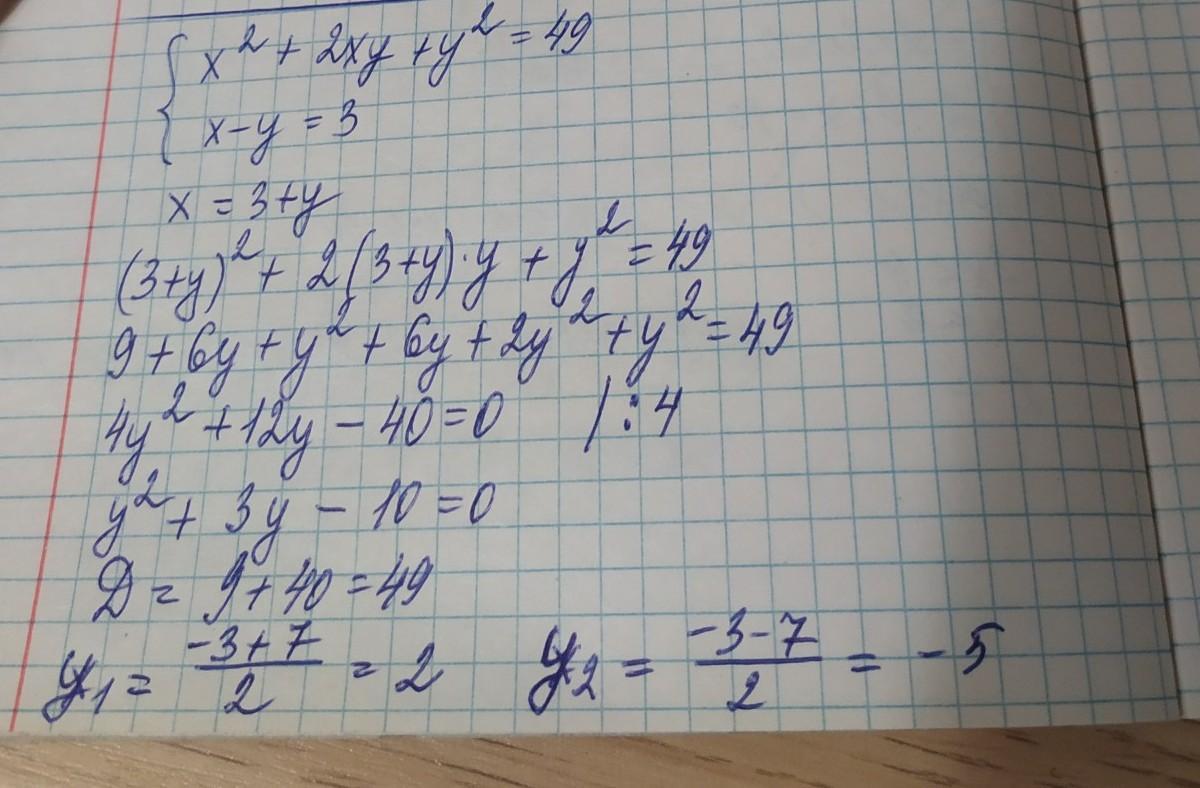 { x² + 2xy + y² = 49
x - y = 3
x = 3 + y
(3+y)² + 2(3+y)·y + y² = 49
9 + 6y + y² + 6y + 2y² + y² = 49
4y² + 12y - 40 = 0 | : 4
y² + 3y - 10 = 0
D = 9 + 40 = 49
y₁ = (-3+7)/2 = 2 y₂ = (-3-7)/2 = -5